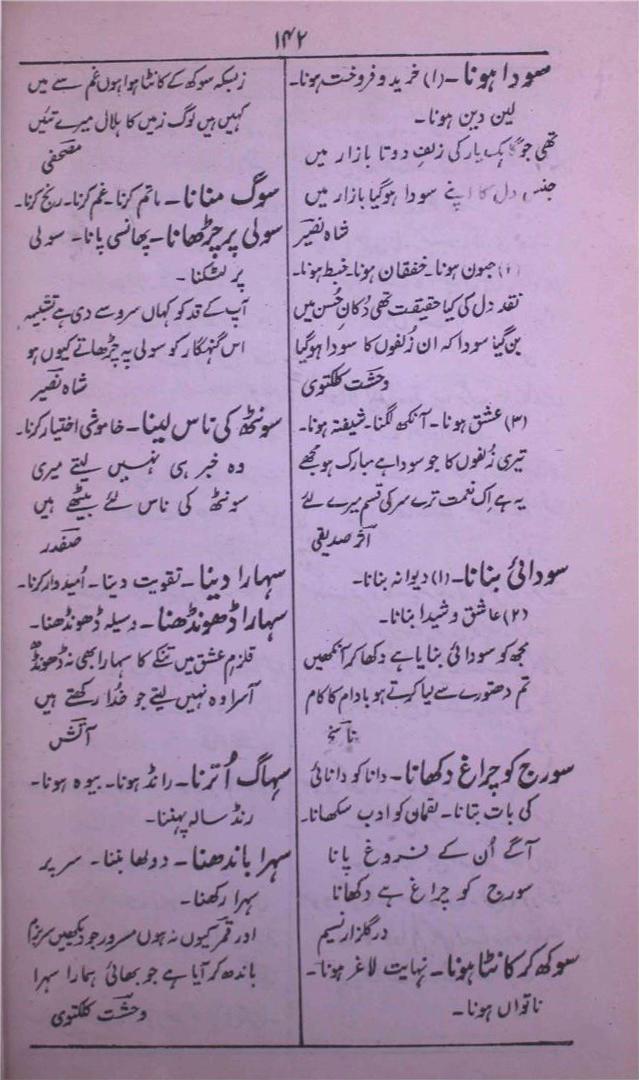 ۱۴۲
سودا ہونا۔ (۱) خرید و فروخت ہونا۔
لین دین ہونا۔
تھی جو گاہک یار کی زلفِ دوتا بازار میں
جنسِ دل کا اپنے سودا ہوگیا بازار میں
شاہ نصیر
(۲) جنون ہونا۔ خفقان ہونا۔ خبط ہونا۔
نقد دل کی کیا حقیقت تھی دُکانِ حُسن میں
بن گیا سودا کہ ان زُلفوں کا سودا ہوگیا
وحشت کلکتوی
(۳) عشق ہونا۔ آنکھ لگنا۔ شیفتہ ہونا۔
تیری زُلفوں کا جو سودا ہے مبارک ہو مجھے
یہ ہے اِک نعمت ترے سر کی قسم میرے لئے
اثر صدیقی
سودائی بنانا۔ (۱) دیوانہ بنانا۔
(۲) عاشق و شیدا بنانا۔
مجھ کو سودائی بنایا ہے دکھا کر آنکھیں
تم دھتورے سے لیا کرتے ہو بادام کا کام
ناسخ
سورج کو چراغ دکھانا۔ دانا کو دانائی
کی بات بتانا۔ لقمان کو ادب سکھانا۔
آگے اُن کے فروغ پانا
سورج کو چراغ ہے دکھانا
در گلزار نسیم
سوکھ کر کانٹا ہونا۔ نہایت لاغر ہونا۔
ناتواں ہونا۔
زبسکہ سوکھ کے کانٹا ہوا ہوں غم سے میں
کہیں ہیں لوگ زمیں کا ہلال میرے تئیں
مصحفی
سوگ منانا۔ ماتم کرنا۔ غم کرنا۔ رنج کرنا۔
سولی پر چڑھانا۔ پھانسی پانا۔ سولی
پر لٹکنا۔
آپ کے قد کو کہاں سرو سے دی ہے تشبیہ
اس گنہگار کو سولی پہ چڑھاتے کیوں ہو
شاہ نصیر
سونٹھ کی ناس لینا۔ خاموشی اختیار کرنا۔
وہ خبر ہی نہیں لیتے میری
سونٹھ کی ناس لئے بیٹھے ہیں
صفدر
سہارا دینا۔ تقویت دینا۔ اُمیدوار کرنا۔
سہارا ڈھونڈھنا۔ وسیلہ ڈھونڈھنا۔
قلزمِ عشق میں تنکے کا سہارا بھی نہ ڈھونڈھ
آسرا وہ نہیں لیتے جو خُدا رکھتے ہیں
آتش
سہاگ اُترنا۔ رانڈ ہونا۔ بیوہ ہونا۔
رنڈ سالہ پہننا۔
سہرا باندھنا۔ دولھا بننا۔ سر پر
سہرا رکھنا۔
اور قمر کیوں نہ ہوں مسرور جو دیکھیں سرِ بزم
باندھ کر آیا ہے جو بھائی ہمارا سہرا
وحشت کلکتوی